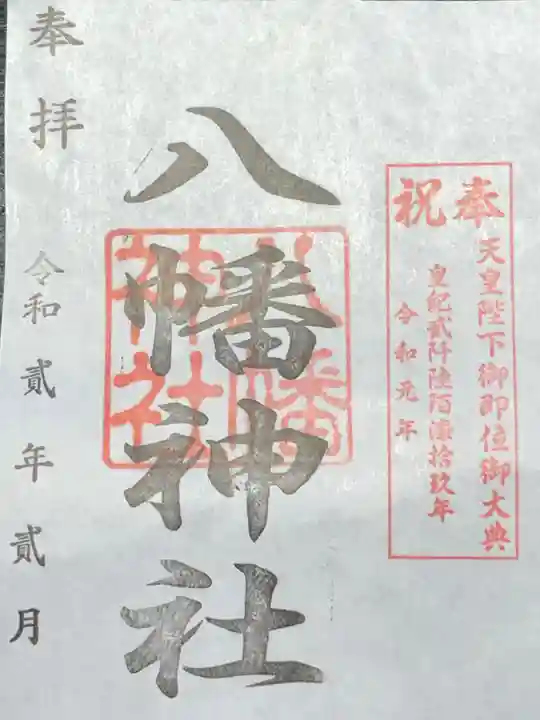 奉祝
天皇陛下御即位御大典
皇紀貳阡陸陌漆拾玖年
令和元年
八幡神社
八幡
神社
奉拝
令和貳年貳月